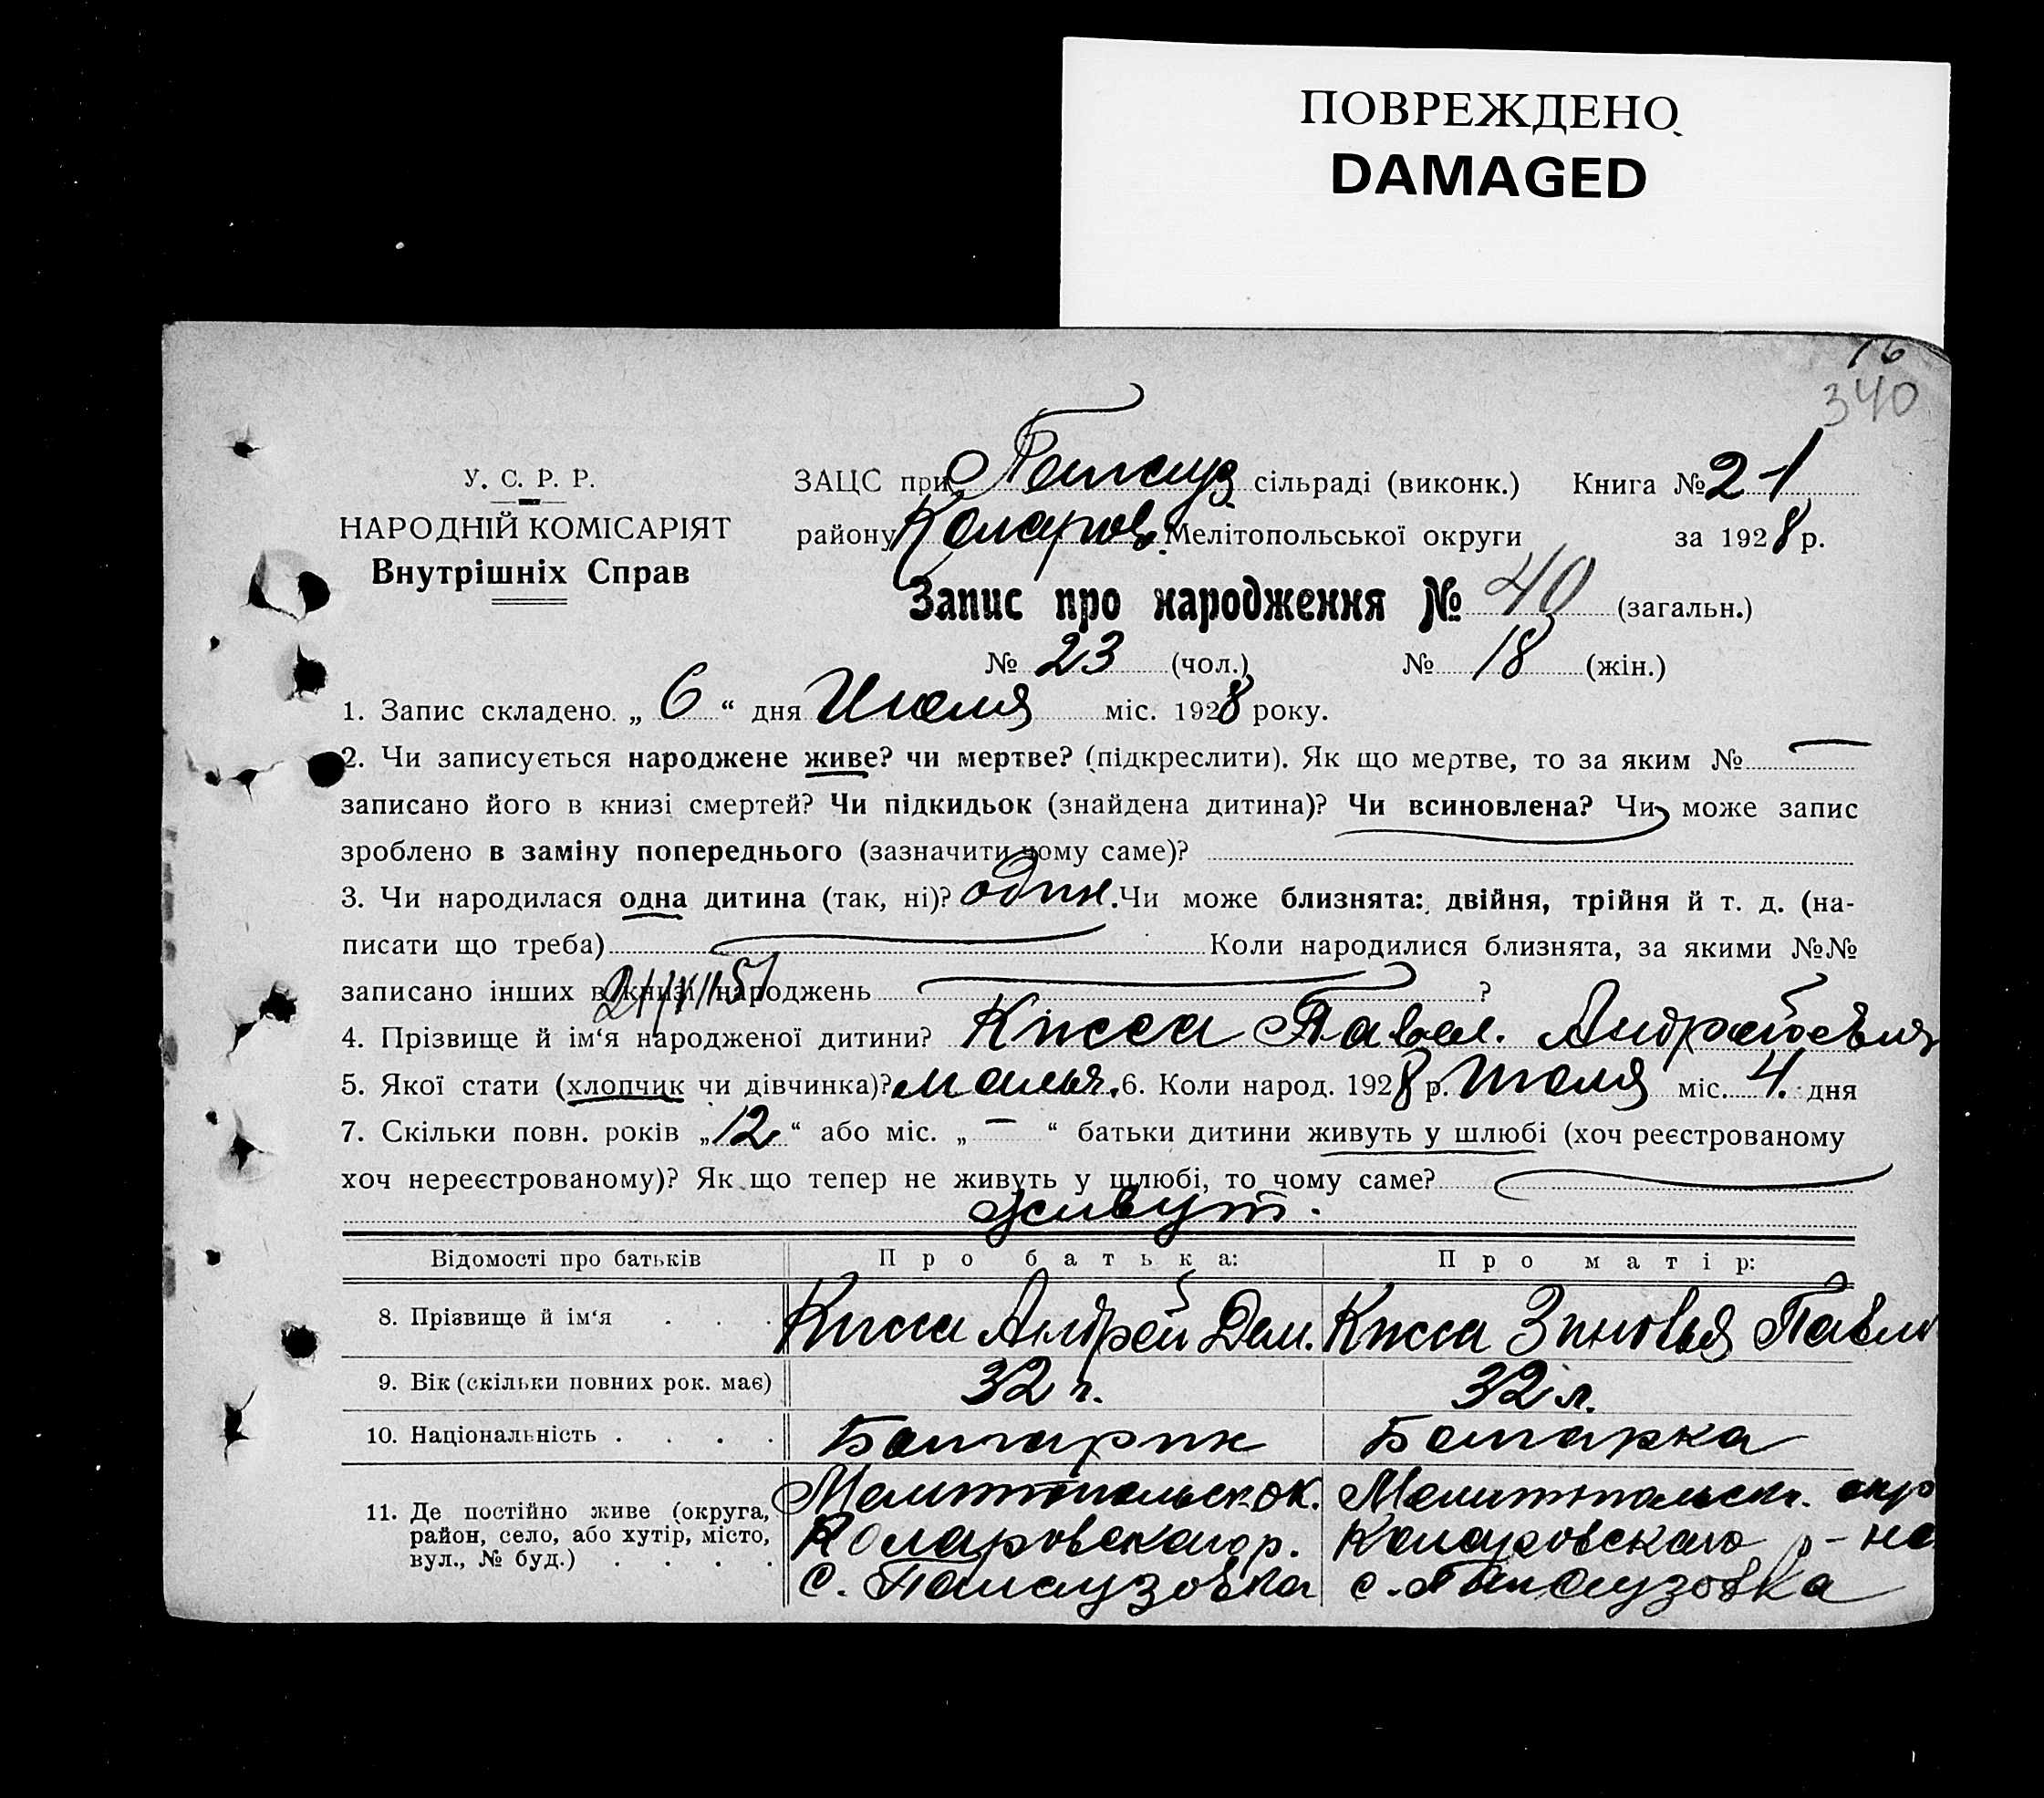 ПОВРЕЖДЕНО
DAMAGED
16
340
У. С. Р. Р.
НАРОДНІЙ КОМІСАРІЯТ
Внутрішніх Справ
ЗАЦС при сільраді (виконк.) Книга № 21
району Коларов. Мелітопольської округи за 1928 р.
Запис про народження № 40 (загальн.)
№ 23 (чол.) № 18 (жін.)
1. Запис складено „ 6 “ дня Июля міс. 1928 року.
2. Чи записується народжене живе? чи мертве? (підкреслити). Як що мертве, то за яким № —
записано його в книзі смертей? Чи підкидьок (знайдена дитина)? Чи всиновлена? Чи може запис
зроблено в заміну попереднього (зазначити чому саме)?
3. Чи народилася одна дитина (так, ні)? один. Чи може близнята: двійня, трійня й т. д. (на-
писати що треба) Коли народилися близнята, за якими №№
записано інших в книзі народжень ?
4. Прізвище й ім‘я народженої дитини? Кисса Павел. Андрейевич
5. Якої стати (хлопчик чи дівчинка)? мальч. 6. Коли народ. 1928 р. Июля міс. 4. дня
7. Скільки повн. років „ 12 “ або міс. „ — “ батьки дитини живуть у шлюбі (хоч реєстрованому
хоч нереєстрованому)? Як що тепер не живуть у шлюбі, то чому саме?
живут.
Відомості про батьків Про батька: Про матір:
8. Прізвище й ім‘я . . . Кисса Андрей Дем. Кисса Зиновья Павл
9. Вік (скільки повних рок. має) 32 г. 32 л.
10. Національність . . . . Болгарин Болгарка
11. Де постійно живе (округа, Мелитопольск. ок. Мелитопольск. окр
район, село, або хутір, місто, Коларовского р. Коларовского р-на
вул., № буд.) . . . . с. Палаузовка с. Палаузовка